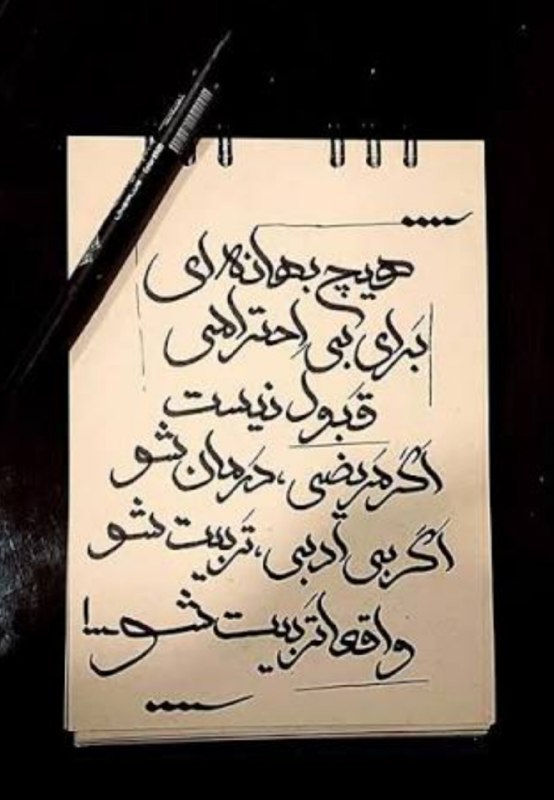 هیچ بهانه ای
بَرای بی اِحترامی
قَبول نیست
اَگَر مَریضی ، دَرمان شو
اَگَر بی اَدبی ، تَربیت شو
واقعا تَربیت شو...!